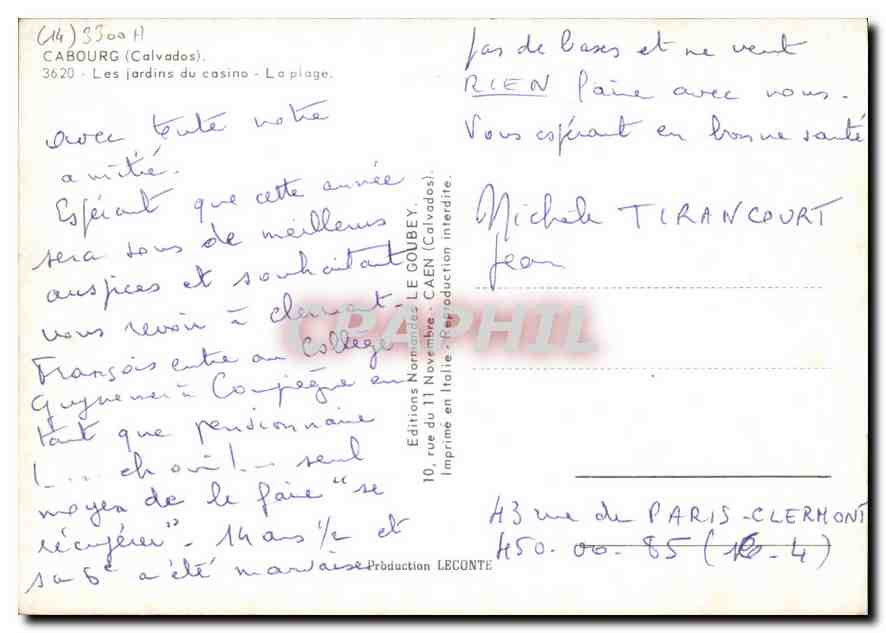 (14) 3300 H
CABOURG (Calvados).
3620 - Les jardins du casino - La plage.
avec toute notre
amitié.
Espérant que cette année
sera sous de meilleurs
auspices et souhaitant
vous revoir à clermont-
François entre au collège
Guynemer à Compiègne en
tant que pensionnaire
seul
moyen de le faire "se
récupérer" - 14 ans 1/2 et
sa 6e a été mauvaise
pas de bases et ne veut
RIEN faire avec nous.
Vous espérant en bonne santé
Michèle TIRANCOURT
Jean
43 rue de PARIS - CLERMONT
450-00-85 (16-4)
Editions Normandes LE GOUBEY.
10, rue du 11 Novembre - CAEN (Calvados).
Imprimé en Italie - Reproduction interdite.
Production LECONTE
CPAPHIL